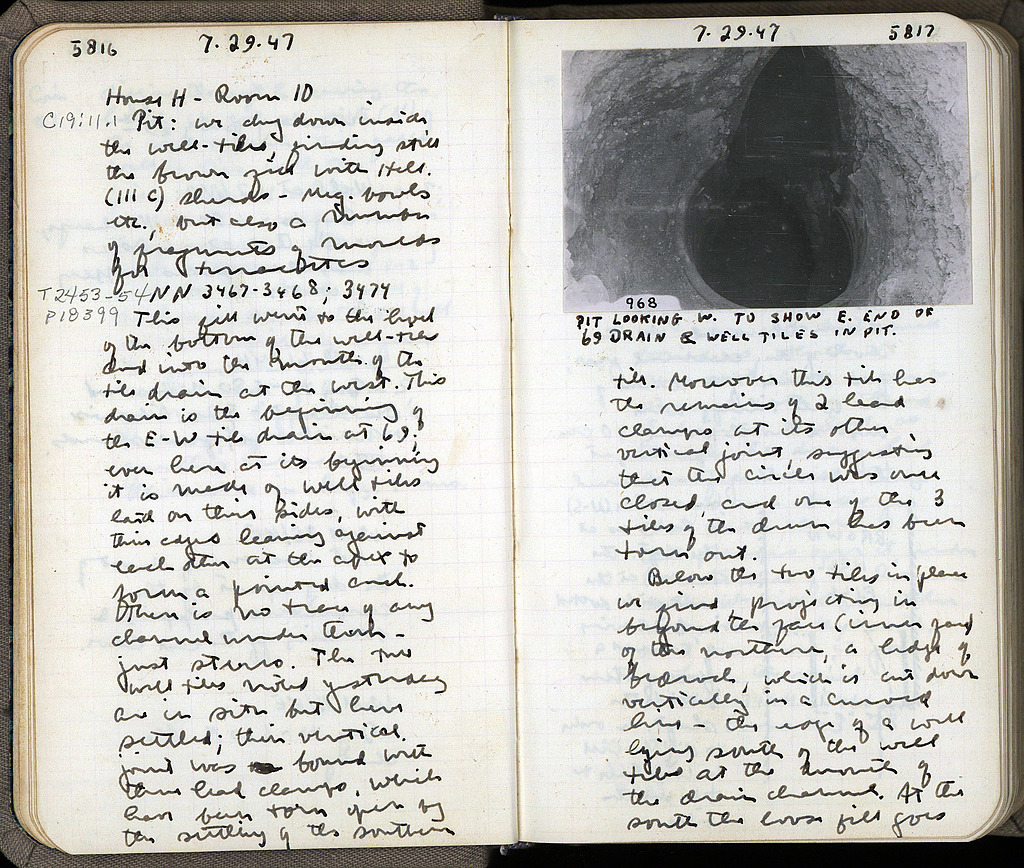 5816
7·29·47
House H - Room 10
C19:11.1 Pit: we dug down inside
the well-tiles, finding still
the brown fill with Hell.
(III C) sherds - Meg. bowls
etc., but also a number
of fragments of moulds
for terracottas
T2453-54 NN 3467-3468; 3474
P18399 This fill went to the level
of the bottom of the well-tiles
and into the mouth of the
tile drain at the west. This
drain is the beginning of
the E-W tile drain at 69;
even here at its beginning
it is made of well tiles
laid on their sides, with
their edges leaning against
each other at the apex to
form a pointed arch.
There is no trace of any
channel under them -
just stereo. The two
well tiles noted yesterday
are in situ but have
settled; their vertical
joint was bound with
three lead clamps, which
have been torn open by
the settling of the southern
7·29·47
5817
968
PIT LOOKING W. TO SHOW E. END OF
69 DRAIN & WELL TILES IN PIT.
tile. Moreover this tile has
the remains of 2 lead
clamps at its other
vertical joint, suggesting
that the circle was once
closed and one of the 3
tiles of the drum has been
torn out.
Below the two tiles in place
we find, projecting in
beyond the face (inner face)
of the northern, a ledge of
bedrock, which is cut down
vertically in a curved
line - the edge of a well
lying south of the well
tiles at the mouth of
the drain channel. At the
south the loose fill goes